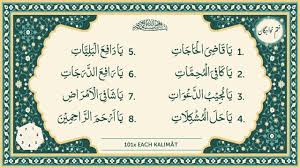 ختم خواجگان
1. يَا قَاضِيَ الْحَاجَاتِ
2. يَا كَافِيَ الْمُهِمَّاتِ
3. يَا مُجِيبَ الدَّعَوَاتِ
4. يَا حَلَّ الْمُشْكِلَاتِ
5. يَا دَافِعَ الْبَلِيَّاتِ
6. يَا رَافِعَ الدَّرَجَاتِ
7. يَا شَافِيَ الْأَمْرَاضِ
8. يَا أَرْحَمَ الرَّاحِمِينَ
101x EACH KALIMĀT